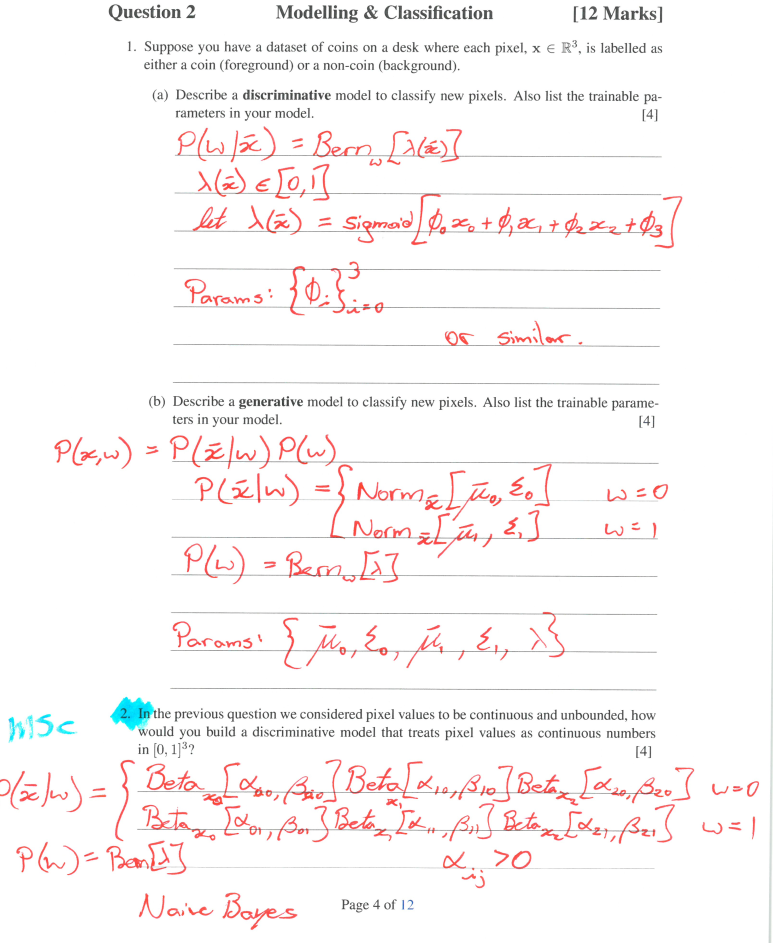 Question 2 Modelling & Classification [12 Marks]
1. Suppose you have a dataset of coins on a desk where each pixel, x ∈ ℝ³, is labelled as
either a coin (foreground) or a non-coin (background).
(a) Describe a discriminative model to classify new pixels. Also list the trainable pa-
rameters in your model. [4]
P(w|x̄) = Bern_w[λ(x̄)]
λ(x̄) ∈ [0,1]
let λ(x̄) = sigmoid[ϕ₀x₀ + ϕ₁x₁ + ϕ₂x₂ + ϕ₃]
Params: {ϕᵢ}³ᵢ₌₀
or similar.
(b) Describe a generative model to classify new pixels. Also list the trainable parame-
ters in your model. [4]
P(x,w) = P(x̄|w)P(w)
P(x̄|w) = { Norm_x̄[μ̄₀, Σ₀] w=0
Norm_x̄[μ̄₁, Σ₁] w=1
P(w) = Bern_w[λ]
Params: {μ̄₀, Σ₀, μ̄₁, Σ₁, λ}
MSc
2. In the previous question we considered pixel values to be continuous and unbounded, how
would you build a discriminative model that treats pixel values as continuous numbers
in [0, 1]³? [4]
P(x̄|w) = { Beta_x₀[α₀₀, β₀₀] Beta_x₁[α₁₀, β₁₀] Beta_x₂[α₂₀, β₂₀] w=0
Beta_x₀[α₀₁, β₀₁] Beta_x₁[α₁₁, β₁₁] Beta_x₂[α₂₁, β₂₁] w=1
P(w) = Bern[λ] αᵢⱼ > 0
Naive Bayes
Page 4 of 12